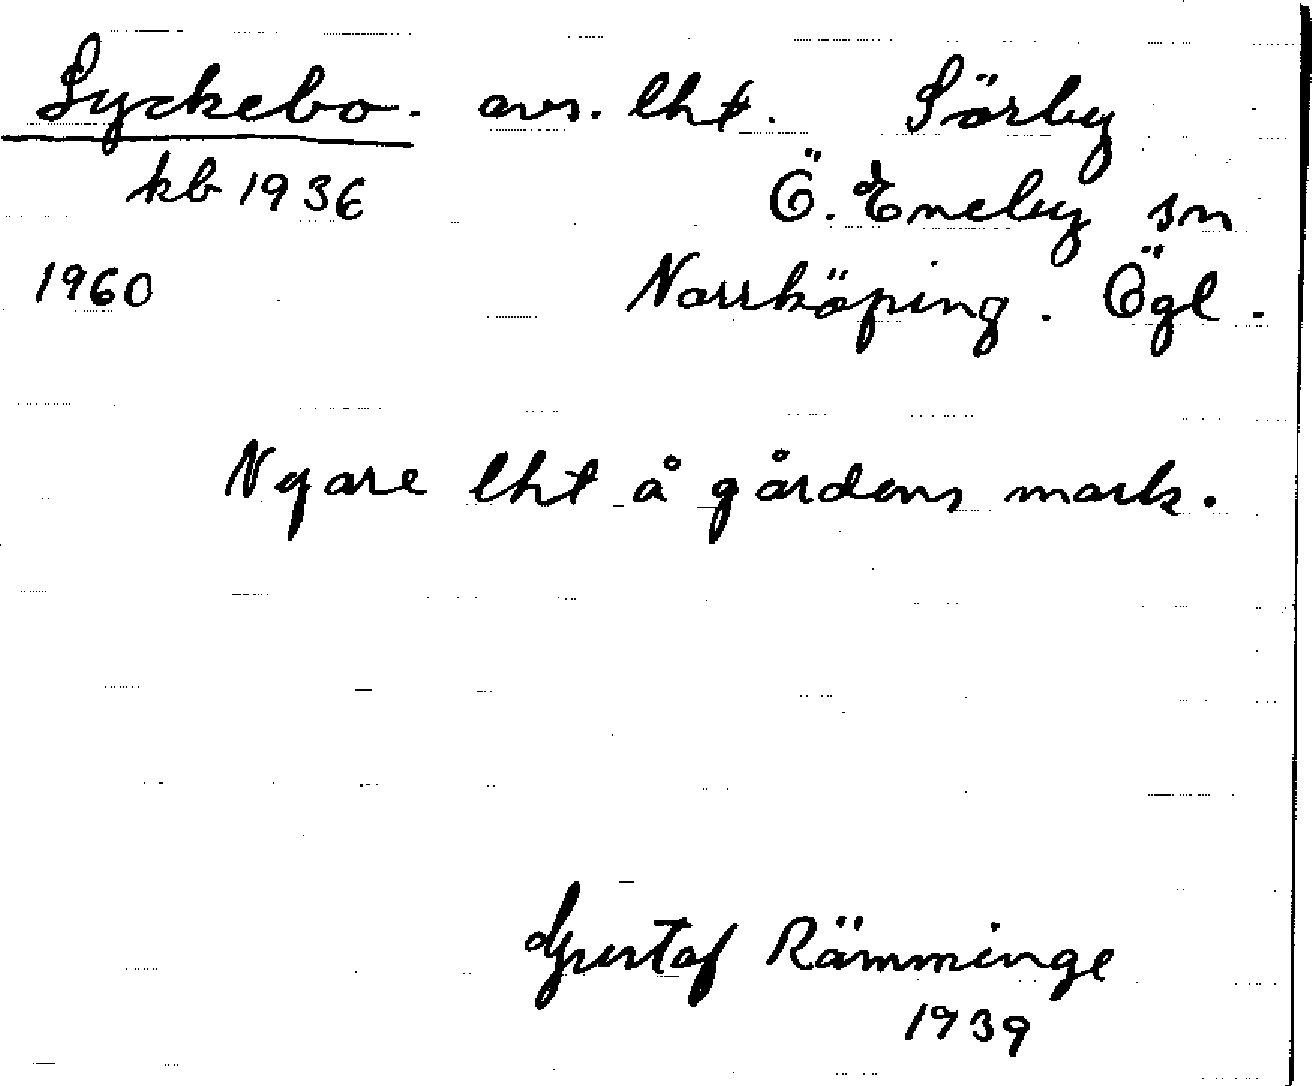 Lyckebo. avs. lht. Sörby
kb 1936 Ö. Eneby sn
1960 Norrköping. Ögl.
Nyare lht å gårdens mark.
Gustaf Rämminge
1939